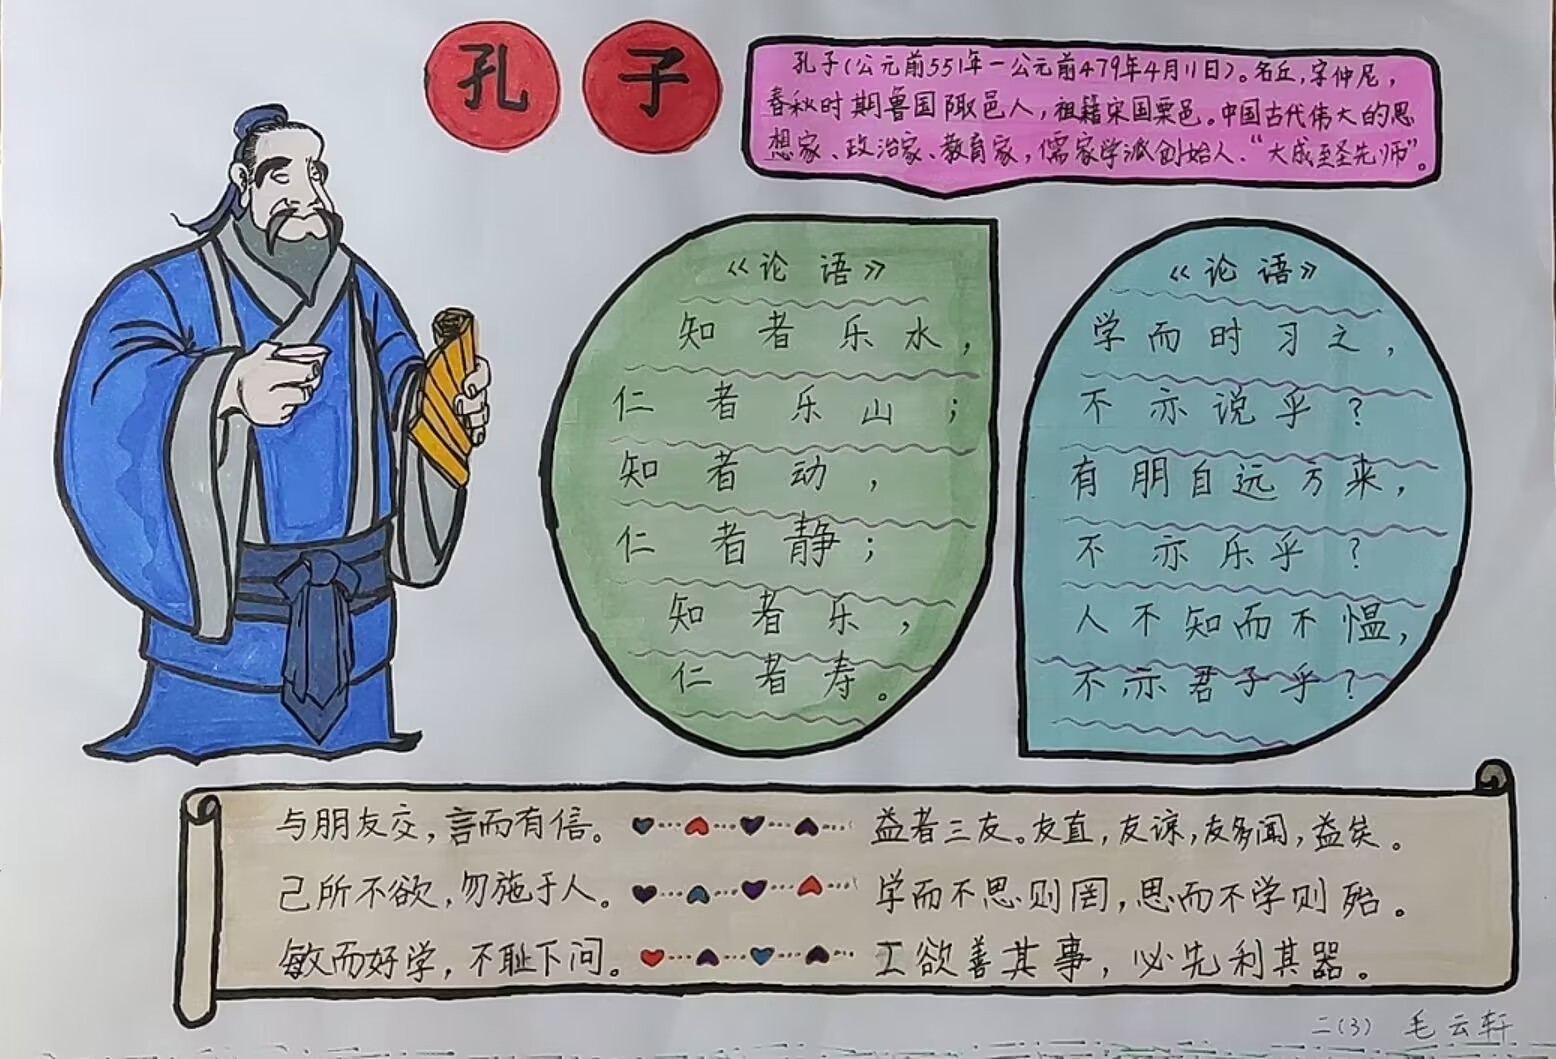 孔子
孔子(公元前551年—公元前479年4月11日)。名丘,字仲尼,
春秋时期鲁国陬邑人,祖籍宋国栗邑。中国古代伟大的思
想家、政治家、教育家,儒家学派创始人、“大成至圣先师”。
《论语》
知者乐水,
仁者乐山;
知者动,
仁者静;
知者乐,
仁者寿。
《论语》
学而时习之,
不亦说乎?
有朋自远方来,
不亦乐乎?
人不知而不愠,
不亦君子乎?
与朋友交,言而有信。
己所不欲,勿施于人。
敏而好学,不耻下问。
益者三友。友直,友谅,友多闻,益矣。
学而不思则罔,思而不学则殆。
工欲善其事,必先利其器。
二(3) 毛云轩